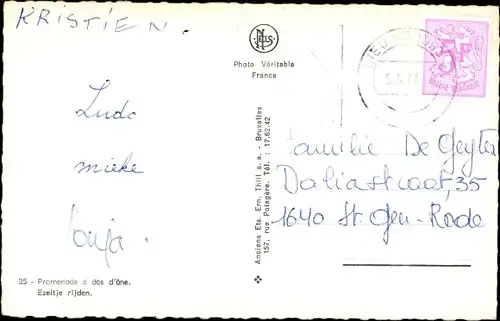 KRISTIEN.
Ludo
mieke
Sonja.
35 - Promenade à dos d'âne.
Ezeltje rijden.
NELS
Photo Véritable
France
Anciens Ets. Ern. Thill s. a. - Bruxelles
157, rue Potagère. Tél. : 17.62.42
BELGIE-BELGIQUE
Familie De Geyter
Daliastraat, 35
1640 St. Gen-Rode